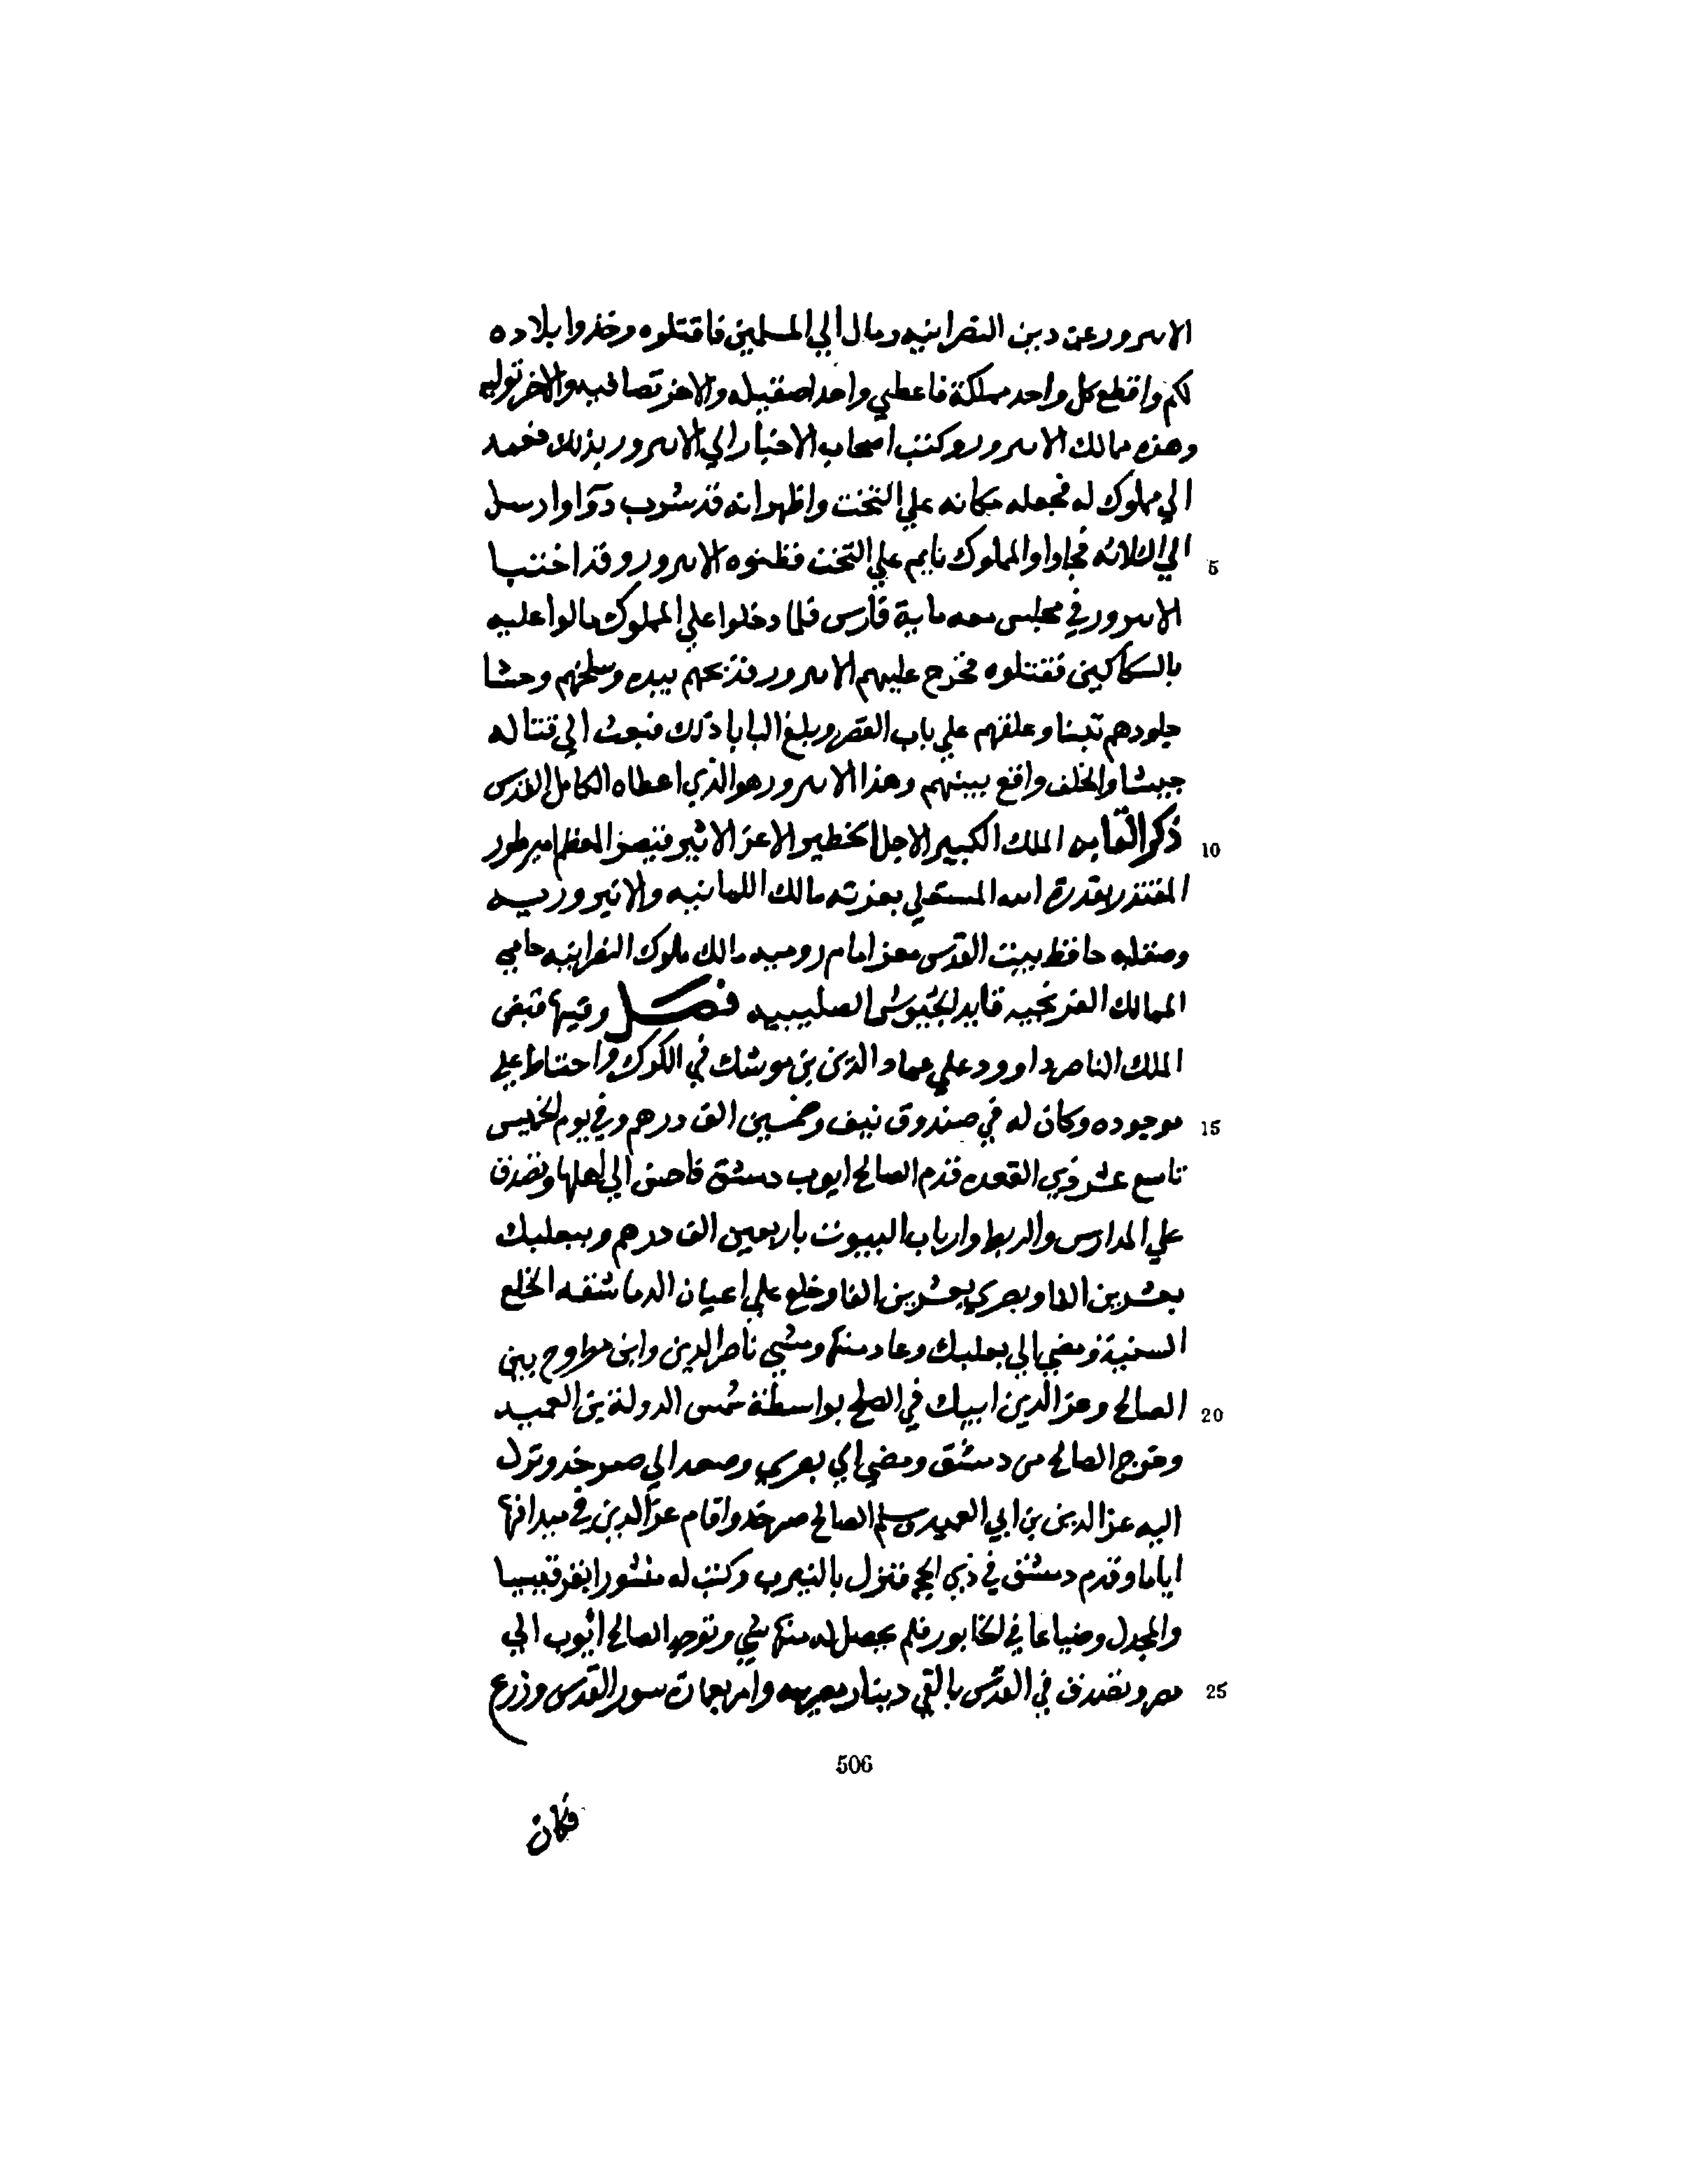 الانبرور عن دين النصرانيه ومال الي المسلمين فاقتلوه وخذوا بلاده
لكم واقطع كل واحد مملكة فاعطي واحدا صقيليه والاخر تصافيه والاخر توليه
وهذه ممالك الانبرور وكتب اصحاب الاخبار الي الانبرور بذلك فعمد
الي مملوك له فجعله مكانه علي التخت واظهر انه قد شرب دوآ وارسل
5 الي الثلاثه فجاوا والمملوك نايم علي التخت فظنوه الانبرور وقد اختبا
الانبرور في مجلس معه ماية فارس فلما دخلوا علي المملوك مالوا عليه
بالسكاكين فقتلوه فخرج عليهم الانبرور فذبحهم بيده وسلخهم وحشا
جلودهم تبنا وعلقهم علي باب القصر وبلغ البابا ذلك فبعث الي قتاله
جيشا والخلف واقع بينهم وهذا الانبرور هو الذي اعطاه الكامل القدس
10 ذكر القابه الملك الكبير الاجل الخطير الاعز الاثير قيصر المعظم امبرطور
المقتدر بقدرة الله المستعلي بعزته مالك اللمانيه والانبروريه
وصقليه حافظ بيت القدس معز امام روميه مالك ملوك النصرانيه حامي
الممالك الفرنجيه قايد الجيوش الصليبيه فصل وفيها قبض
الملك الناصر داوود علي عماد الدين بن موشك في الكرك واحتاط علي
15 موجوده وكان له في صندوق نيف وخمسين الف درهم وفي يوم الخميس
تاسع عشر ذي القعده قدم الصالح ايوب دمشق فاحسن الي اهلها وتصدق
علي المدارس والربط وارباب البيوت باربعين الف درهم وببعلبك
بعشرين الفا وبصري بعشرين الفا وخلع علي اعيان الدماشقه الخلع
السنية ومضي الي بعلبك وعاد منها ومشي ناصر الدين وابن مطروح بين
20 الصالح وعز الدين ايبك في الصلح بواسطة شمس الدولة بن العميد
وخرج الصالح من دمشق ومضي الي بصري وصعد الي صرخد ونزل
اليه عز الدين بن ابي العميد سلم الصالح صرخد واقام عز الدين في ميدانها
اياما وقدم دمشق في ذي الحجه فنزل بالنيرب وكتب له منشورا بقرقيسيا
والمجدل وضياعا في الخابور فلم يحصل له منها شي وتوجه الصالح ايوب الي
25 مصر وتصدق في القدس بالفي دينار مصريه وامر بعمارة سور القدس وذرع
506
فكان